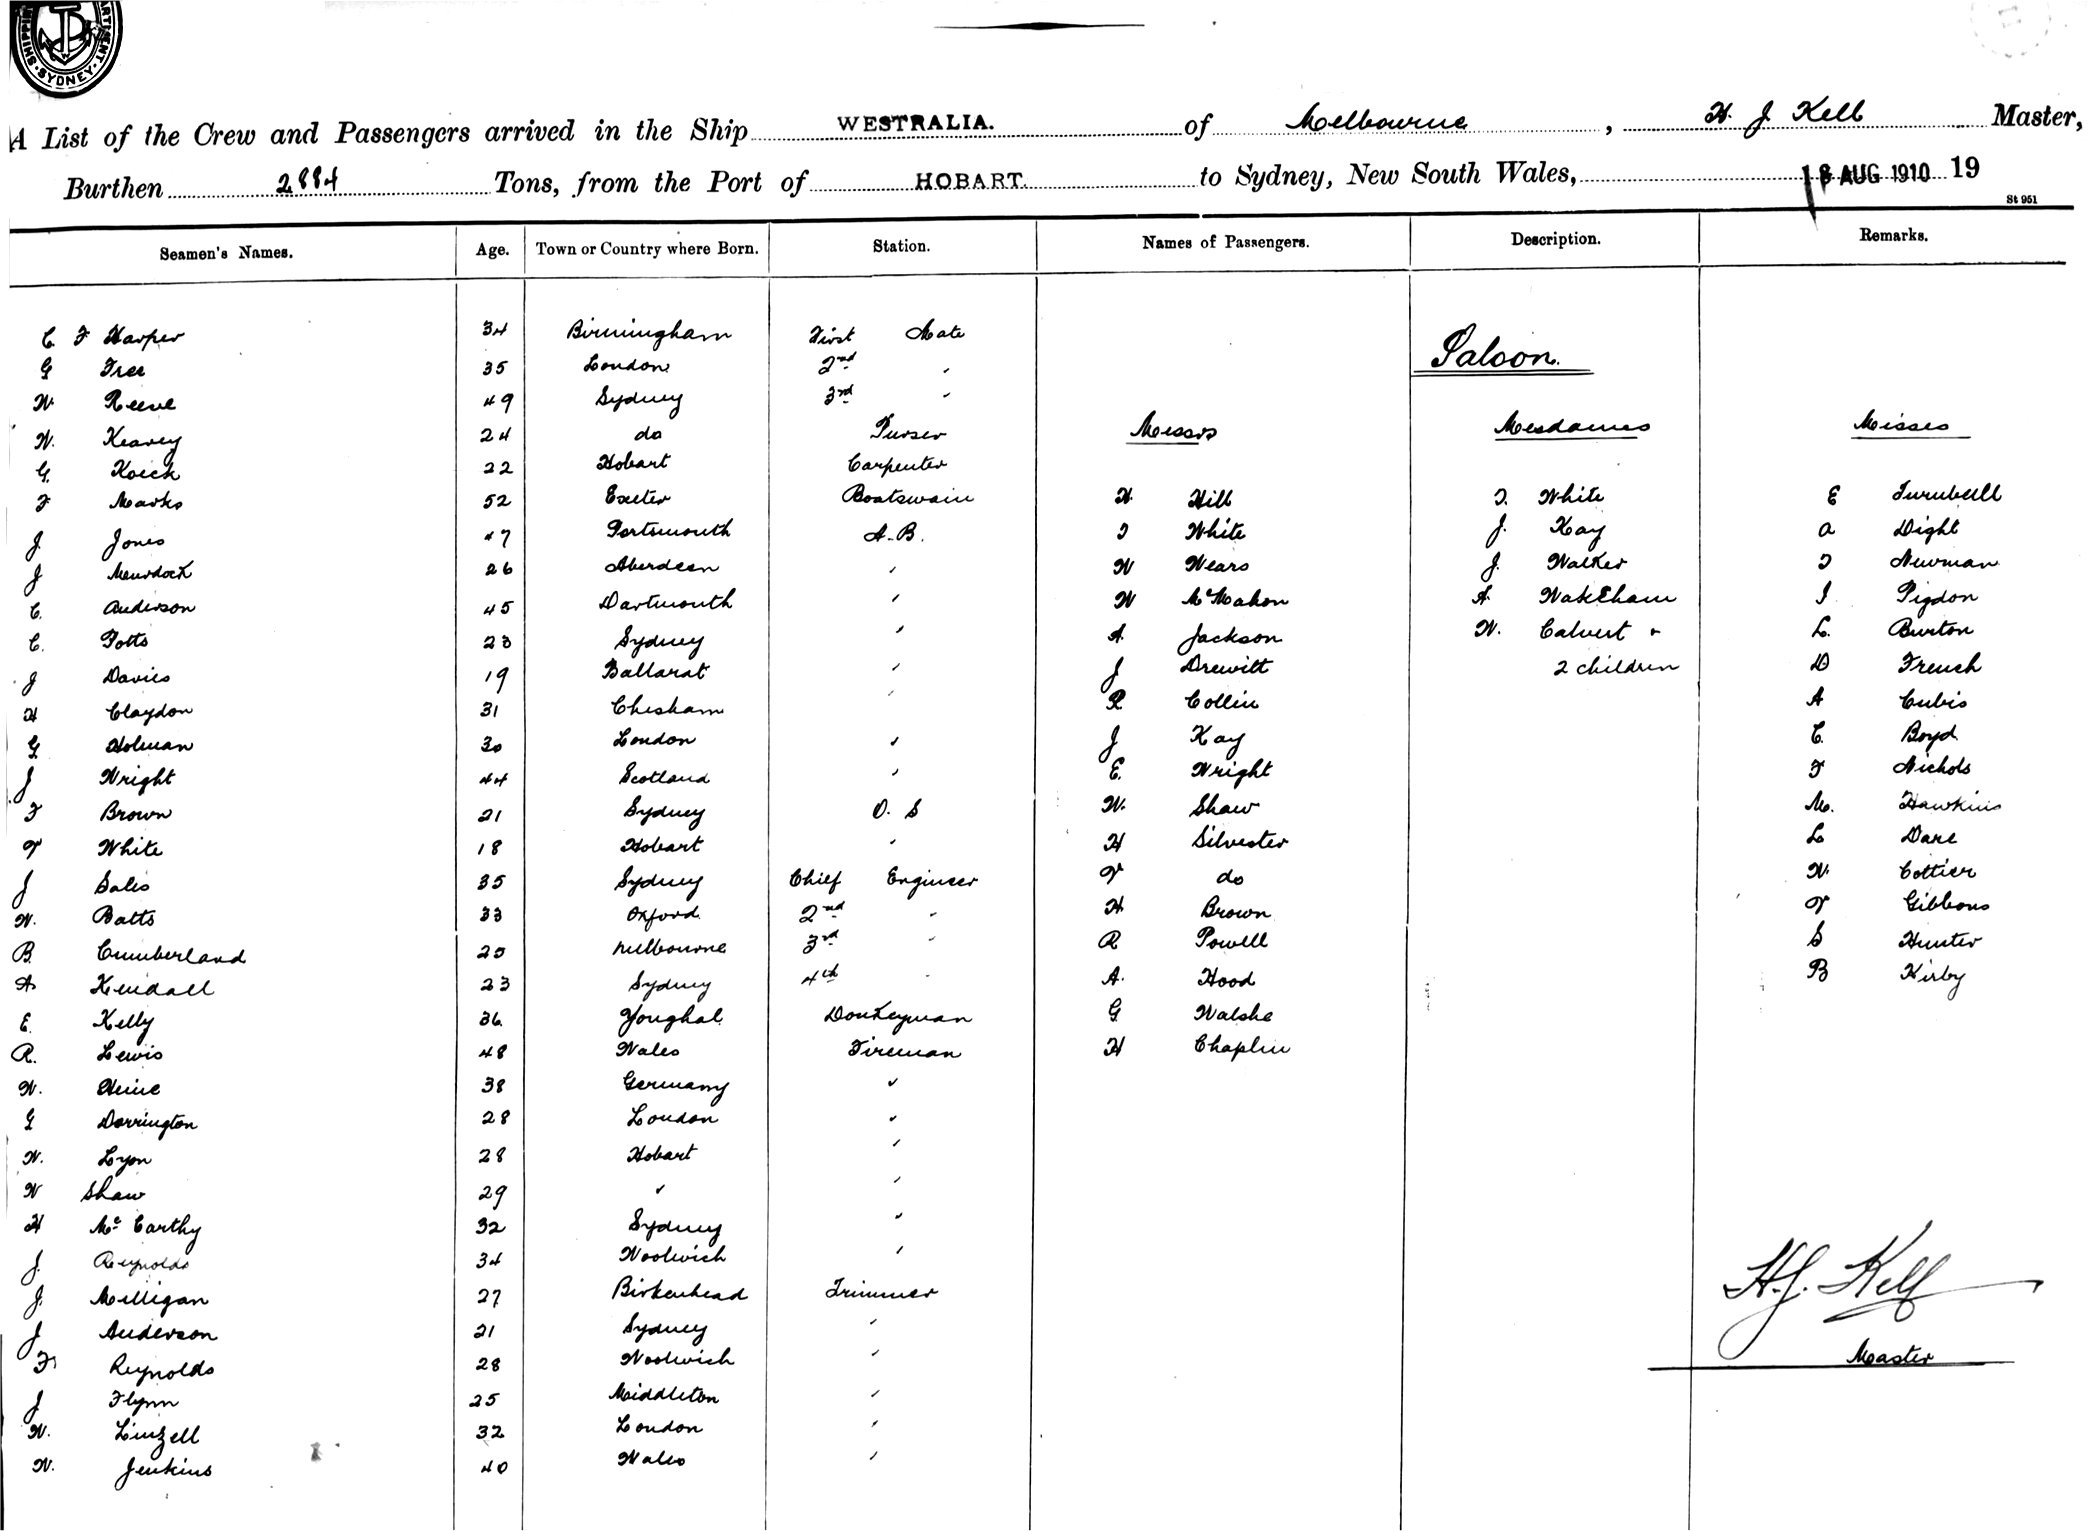 SHIPPING DEPARTMENT. SYDNEY.
A List of the Crew and Passengers arrived in the Ship WESTRALIA. of Melbourne, H. J Kell Master,
Burthen 2884 Tons, from the Port of HOBART. to Sydney, New South Wales, AUG 1910 19
St 951
Seamen's Names. Age. Town or Country where Born. Station. Names of Passengers. Description. Remarks.
C. F Harper 34 Birmingham First Mate
Saloon.
G Free 35 London 2nd "
W. Reeve 49 Sydney 3rd "
W. Keavey 24 do Purser Messrs Mesdames Misses
G. Koeck 22 Hobart Carpenter
F Marks 52 Exeter Boatswain H Hill T. White E Turnbull
J. Jones 47 Portsmouth A.B. T White J. Kay A Dight
J Murdock 26 Aberdeen " W Wears J. Walker T Newman
C. Anderson 45 Dartmouth " W McMahon A. Wakeham I Pigdon
C. Potts 23 Sydney " A. Jackson W. Calvert + L. Burton
J Davies 19 Ballarat " J Drewitt 2 children D French
H Claydon 31 Chesham " R Collin A Cubis
G Holman 30 London " J Kay C. Boyd
J Wright 44 Scotland " E. Wright F Nichols
F Brown 21 Sydney O. S W. Shaw M. Hawkins
T White 18 Hobart " H Silvester L Dare
J Sales 35 Sydney Chief Engineer T do W. Cottier
W. Batts 33 Oxford 2nd " H Brown T Gibbons
B. Cumberland 25 Melbourne 3rd " R Powell S Hunter
A Kendall 23 Sydney 4th " A. Hood B Kirby
E. Kelly 36 Youghal Donkeyman G Walshe
R. Lewis 48 Wales Fireman H Chaplin
W. Heine 38 Germany "
G Dorrington 28 London "
W. Lyon 28 Hobart "
W Shaw 29 " "
H McCarthy 32 Sydney "
J. Reynolds 34 Woolwich "
J. Milligan 27 Birkenhead Trimmer H. J. Kell
J Anderson 21 Sydney "
F. Reynolds 28 Woolwich " Master
J Flynn 25 Middleton "
W. Linzell 32 London "
W. Jenkins 40 Wales "